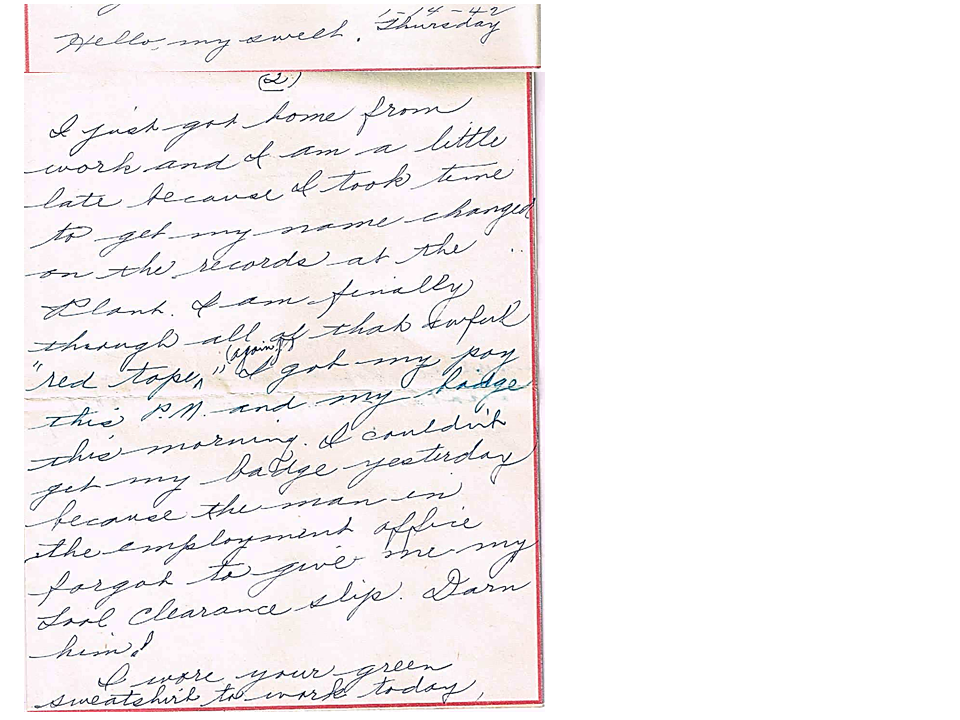 1-14-42
Thursday
Hello, my sweet.
(2.)
I just got home from
work and I am a little
late because I took time
to get my name changed
on the records at the
Plant. I am finally
through all of that awful
"red tape," (again!)
I got my pay
this P.M. and my badge
this morning. I couldn't
get my badge yesterday
because the man in
the employment office
forgot to give me my
tool clearance slip. Darn
him!
I wore your green
sweatshirt to work today,